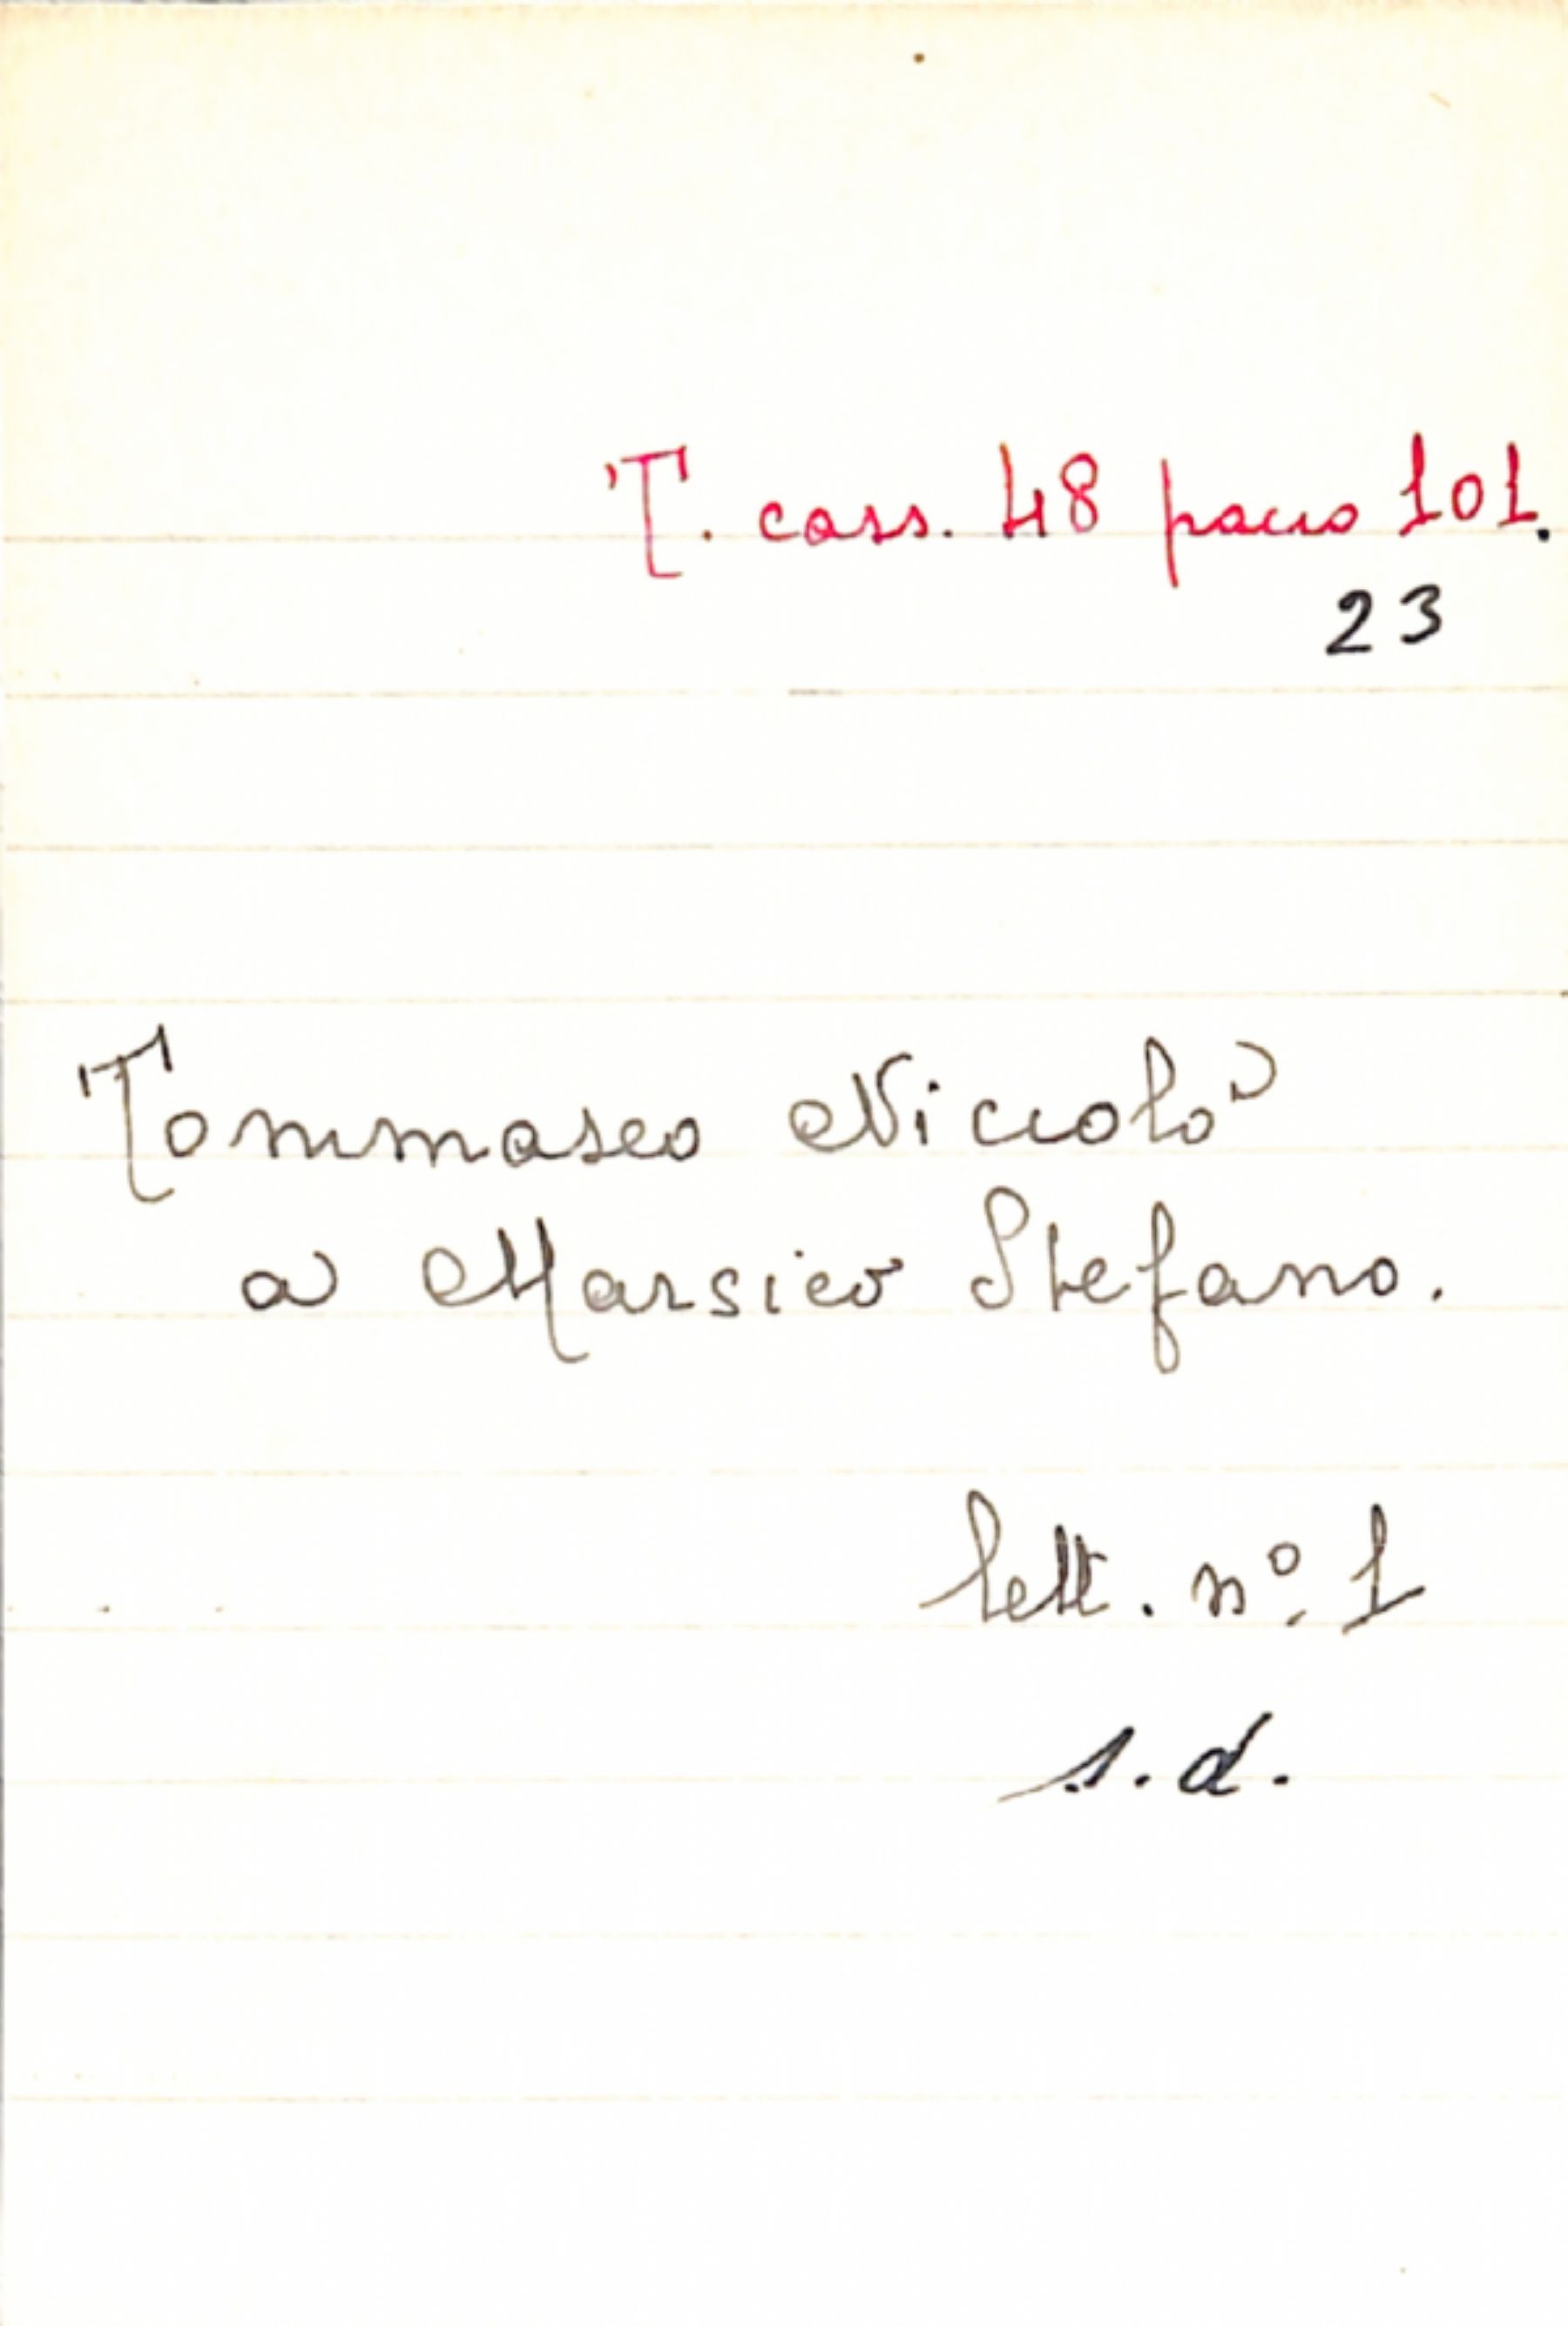 T. cass. 48 pacco 101.
23
Tommaseo Niccolò
a Marsico Stefano.
lett. nº. 1
s.d.